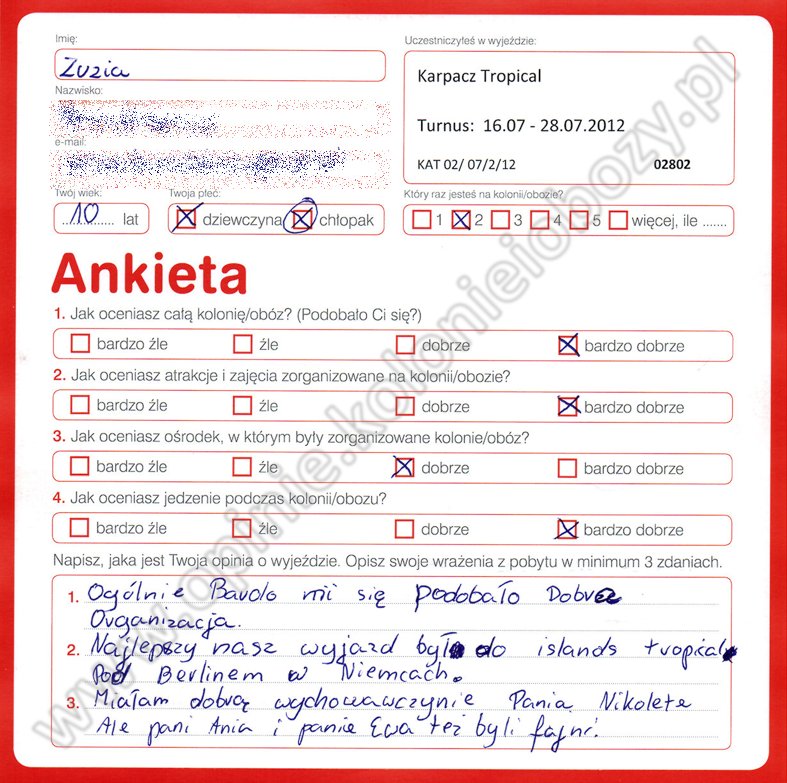 Imię:
Zuzia
Nazwisko:
e-mail:
Twój wiek:
10 lat
Twoja płeć:
dziewczyna chłopak
Uczestniczyłeś w wyjeździe:
Karpacz Tropical
Turnus: 16.07 - 28.07.2012
KAT 02/ 07/2/12 02802
Który raz jesteś na kolonii/obozie?
1 2 3 4 5 więcej, ile .......
Ankieta
1. Jak oceniasz całą kolonię/obóz? (Podobało Ci się?)
bardzo źle źle dobrze bardzo dobrze
2. Jak oceniasz atrakcje i zajęcia zorganizowane na kolonii/obozie?
bardzo źle źle dobrze bardzo dobrze
3. Jak oceniasz ośrodek, w którym były zorganizowane kolonie/obóz?
bardzo źle źle dobrze bardzo dobrze
4. Jak oceniasz jedzenie podczas kolonii/obozu?
bardzo źle źle dobrze bardzo dobrze
Napisz, jaka jest Twoja opinia o wyjeździe. Opisz swoje wrażenia z pobytu w minimum 3 zdaniach.
1. Ogólnie Bardo mi się podobało Dobra
Organizacja.
2. Najlepszy nasz wyjazd był do islands tropical
Pod Berlinem w Niemcach.
3. Miałam dobrą wychowawczynie Panią Nikolete
Ale pani Ania i panie Ewa też byli fajni.
www.opinie.kolonieiobozy.pl